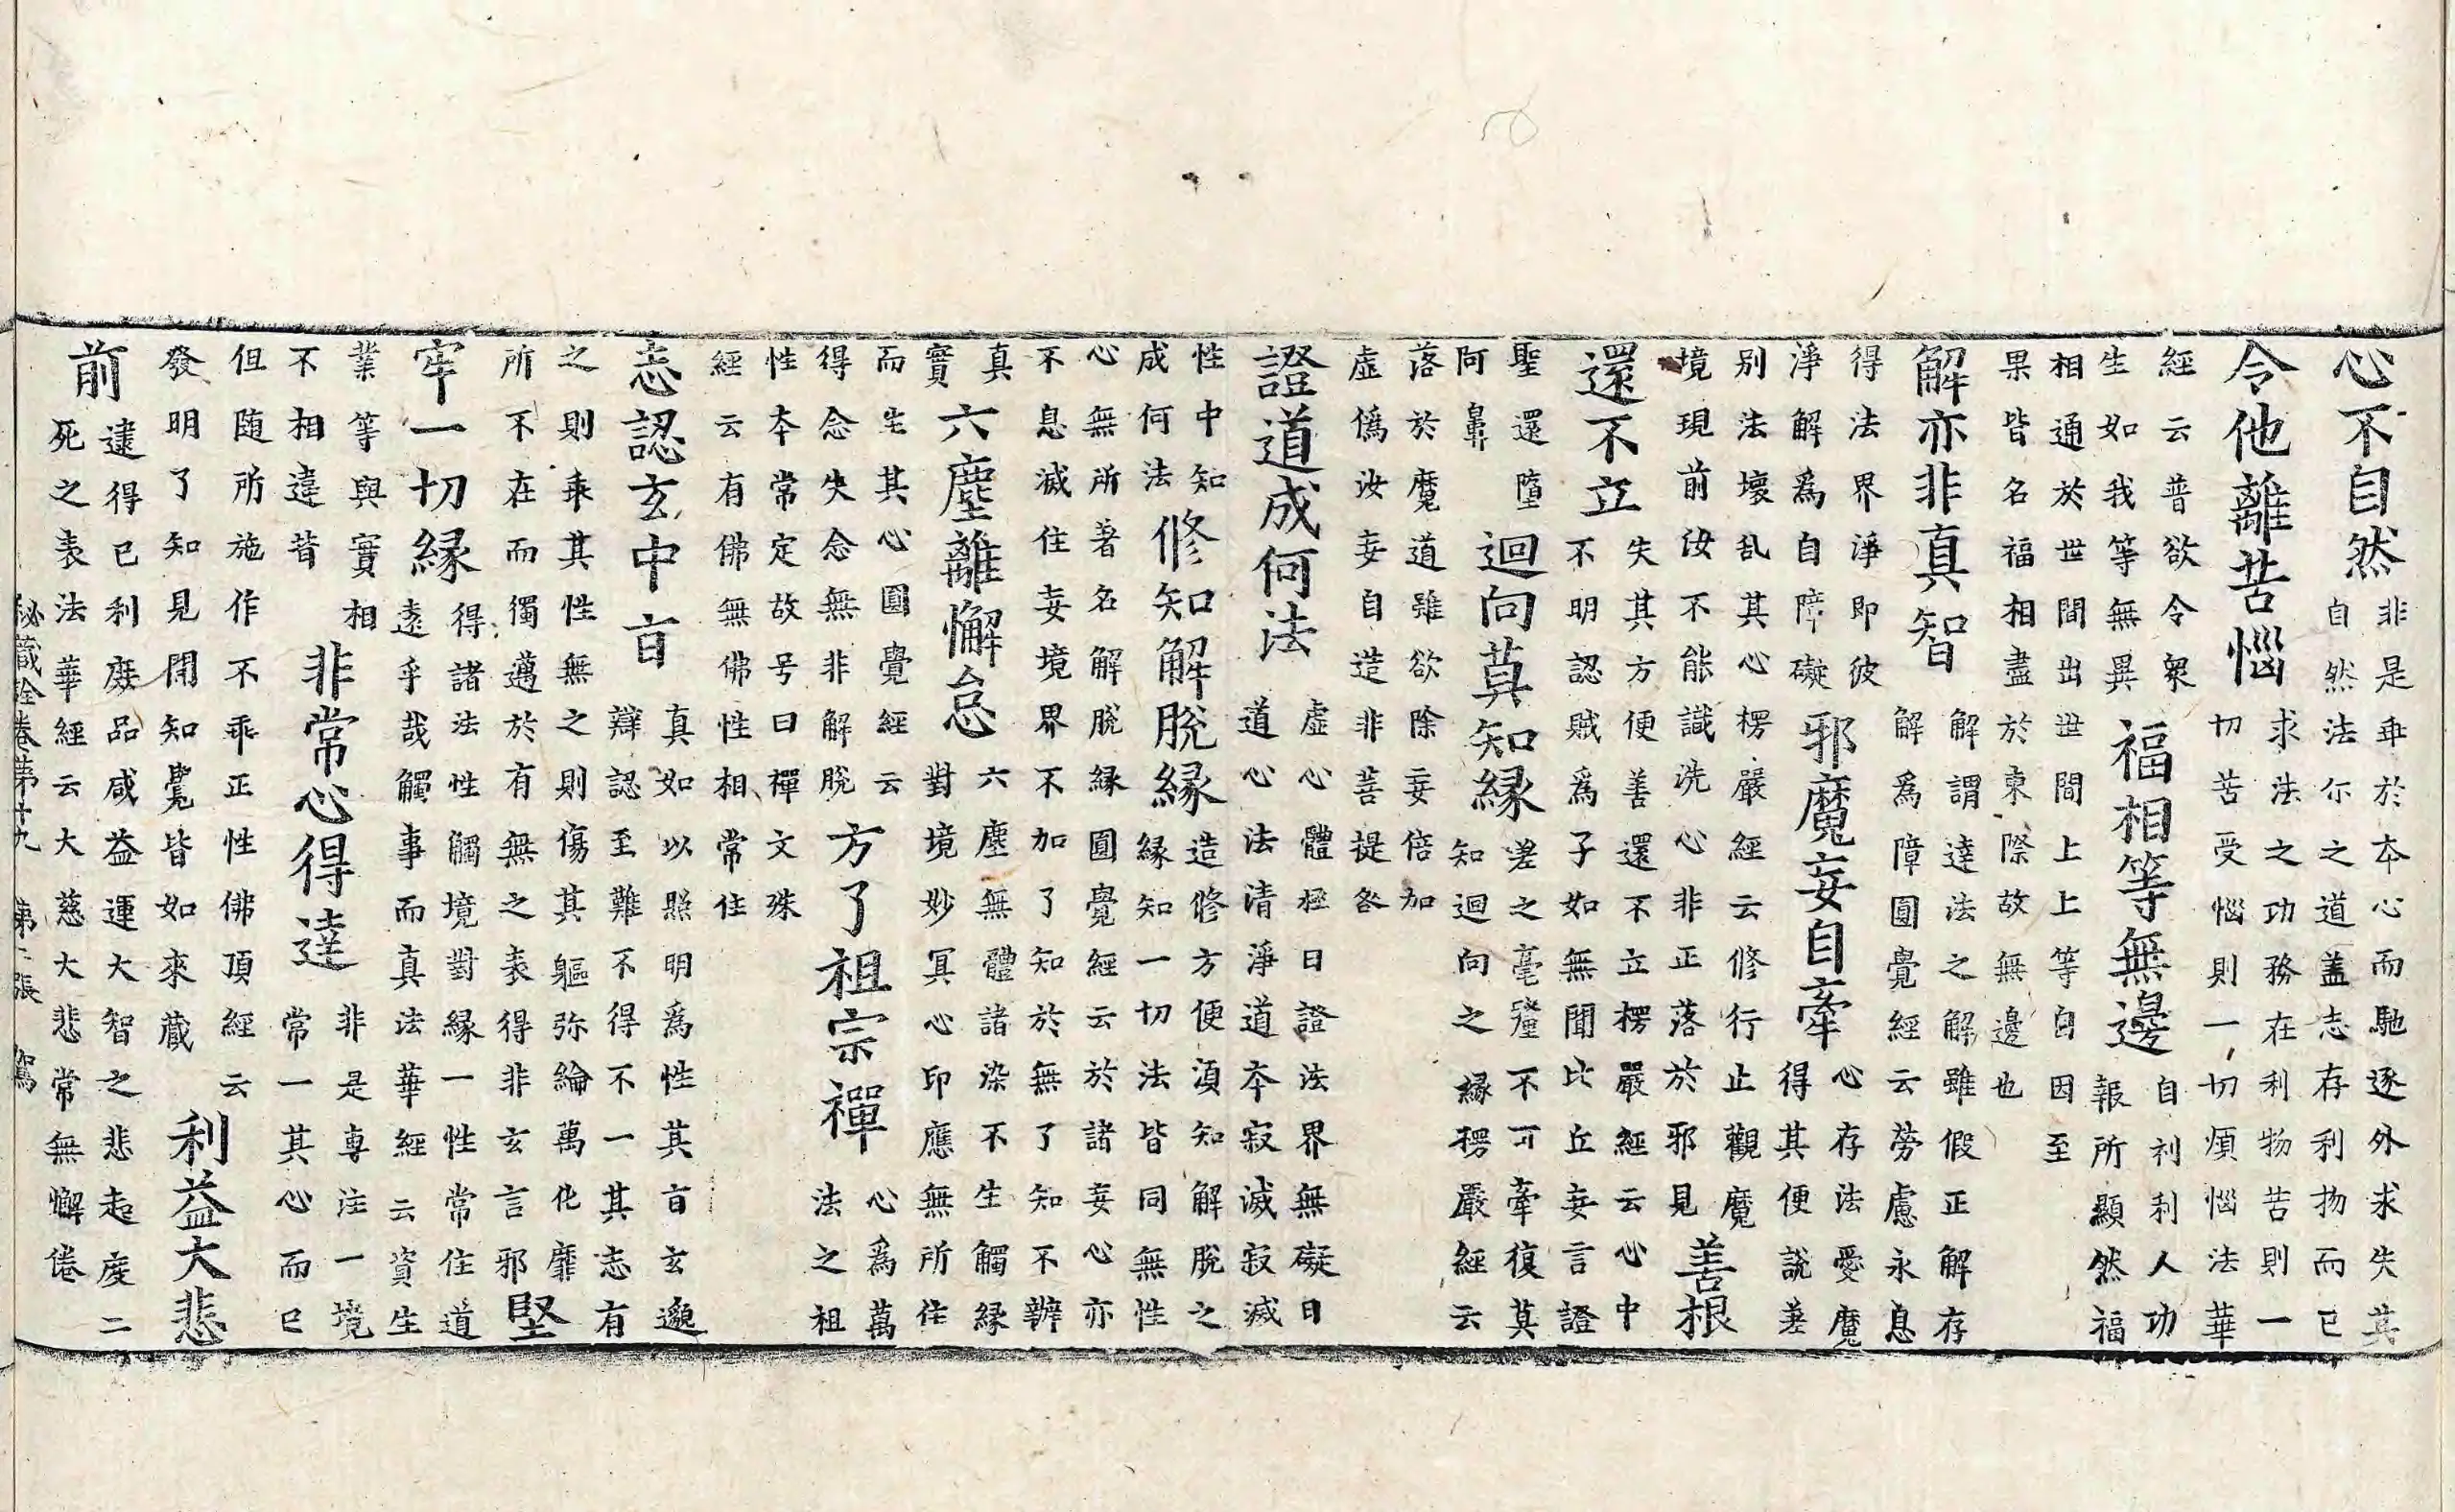 心不自然 非是乖於本心而馳逐外求失其
自然法尒之道盖志存利物而已
令他離苦惱 求法之功務在利物苦則一
切苦受惱則一切煩惱法華
經云普欲令衆
生如我等無異 福相等無邊 自利利人功
報所顯然福
相通於世間出世間上上等自因至
果皆名福相盡於東際故無邊也
解亦非真智 解謂達法之解雖假正解存
解為障圓覺經云勞慮永息
得法界淨即彼
淨解為自障礙 邪魔妄自牽 心存法愛魔
得其便說差
别法壞乱其心楞嚴經云修行止觀魔
境現前汝不能識洗心非正落於邪見 善根
還不立 失其方便善還不立楞嚴經云心中
不明認賊為子如無聞比丘妄言證
聖還墮
阿鼻 迴向莫知縁 差之毫釐不可牽復莫
知迴向之縁楞嚴經云
落於魔道雖欲除妄倍加
虛偽汝妄自造非菩提咎
證道成何法 虛心體極曰證法界無礙曰
道心法清淨道本寂滅寂滅
性中知
成何法 修知解脫縁 造修方便湏知解脫之
縁知一切法皆同無性
心無所著名解脫縁圓覺經云於諸妄心亦
不息滅住妄境界不加了知於無了知不辨
真
實 六塵離懈怠 六塵無體諸染不生觸縁
對境妙冥心印應無所住
而生其心圓覺經云
得念失念無非解脫 方了祖宗禪 心為萬
法之祖
性本常定故号曰禪文殊
經云有佛無佛性相常住
志認玄中㫖 真如以照明為性其㫖玄邈
辯認至難不得不一其志有
之則乘其性無之則傷其軀弥綸萬化靡
所不在而獨邁於有無之表得非玄言邪 堅
牢一切縁 得諸法性觸境對縁一性常住道
遠乎哉觸事而真法華經云資生
業等與實相
不相違背 非常心得達 非是専注一境
常一其心而已
但随所施作不乖正性佛頂經云
發明了知見聞知覺皆如來藏 利益大悲
前 逮得已利庶品咸益運大智之悲起度二
死之表法華經云大慈大悲常無懈倦
秘藏詮卷第十九 第二張 駕